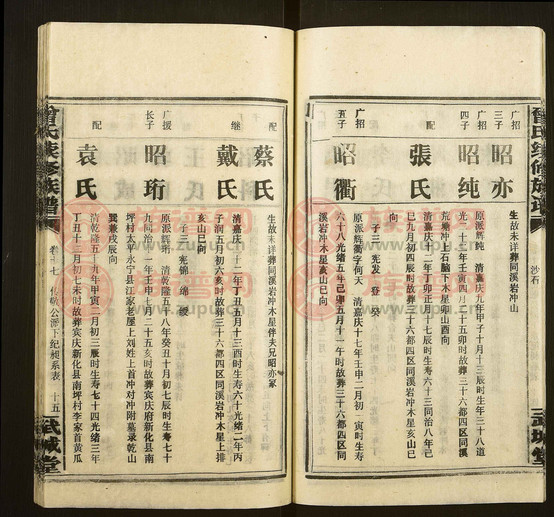 沙石
三武城堂
广招
三子
昭亦
生故未详葬同溪岩冲山
广招
四子
昭纯
原派辉纯 清嘉庆九年甲子十月十三辰时生年三十八道
光二十一年壬寅四月二十五卯时故葬三十六都四区同溪
荒塘冲上石脑下木星卯山酉向
配
張氏
清嘉庆十二年丁卯正月十七辰时生寿六十三同治八年己
巳九月初四辰时故葬三十六都四区同溪岩冲木星亥山巳
向
子三 宪发 登 癸
广招
五子
昭衢
原派辉衢字何天 清嘉庆十七年壬申二月初一寅时生寿
六十八光绪五年己卯五月十一午时故葬三十六都四区同
溪岩冲木星亥山巳向
配
蔡氏
生故未详葬同溪岩冲木星伴夫兄昭亦冢
继
戴氏
清嘉庆二十二年丁丑五月十三酉时生寿六十光绪二年丙
子润五月初六亥时故葬三十六都四区同溪岩冲木星上排
亥山巳向
子三 宪锦 绵 缓
广援
长子
昭珩
原派辉珩 清乾隆五十八年癸丑十月初七辰时生寿七十
九同治十一年壬申七月二十五亥时故葬宝庆府新化县南
坪村太平永宁县江家老屋上刘姓上首冲对冲附墓录乾山
巽兼戌辰向
配
袁氏
清乾隆五十九年甲寅二月初三辰时生寿七十四光绪三年
丁丑十二月初七未时故葬宾庆新化县南坪村李家首黄瓜
曾氏续修族谱
卷十七
化敬公派下纪昶系表
十五
武城堂